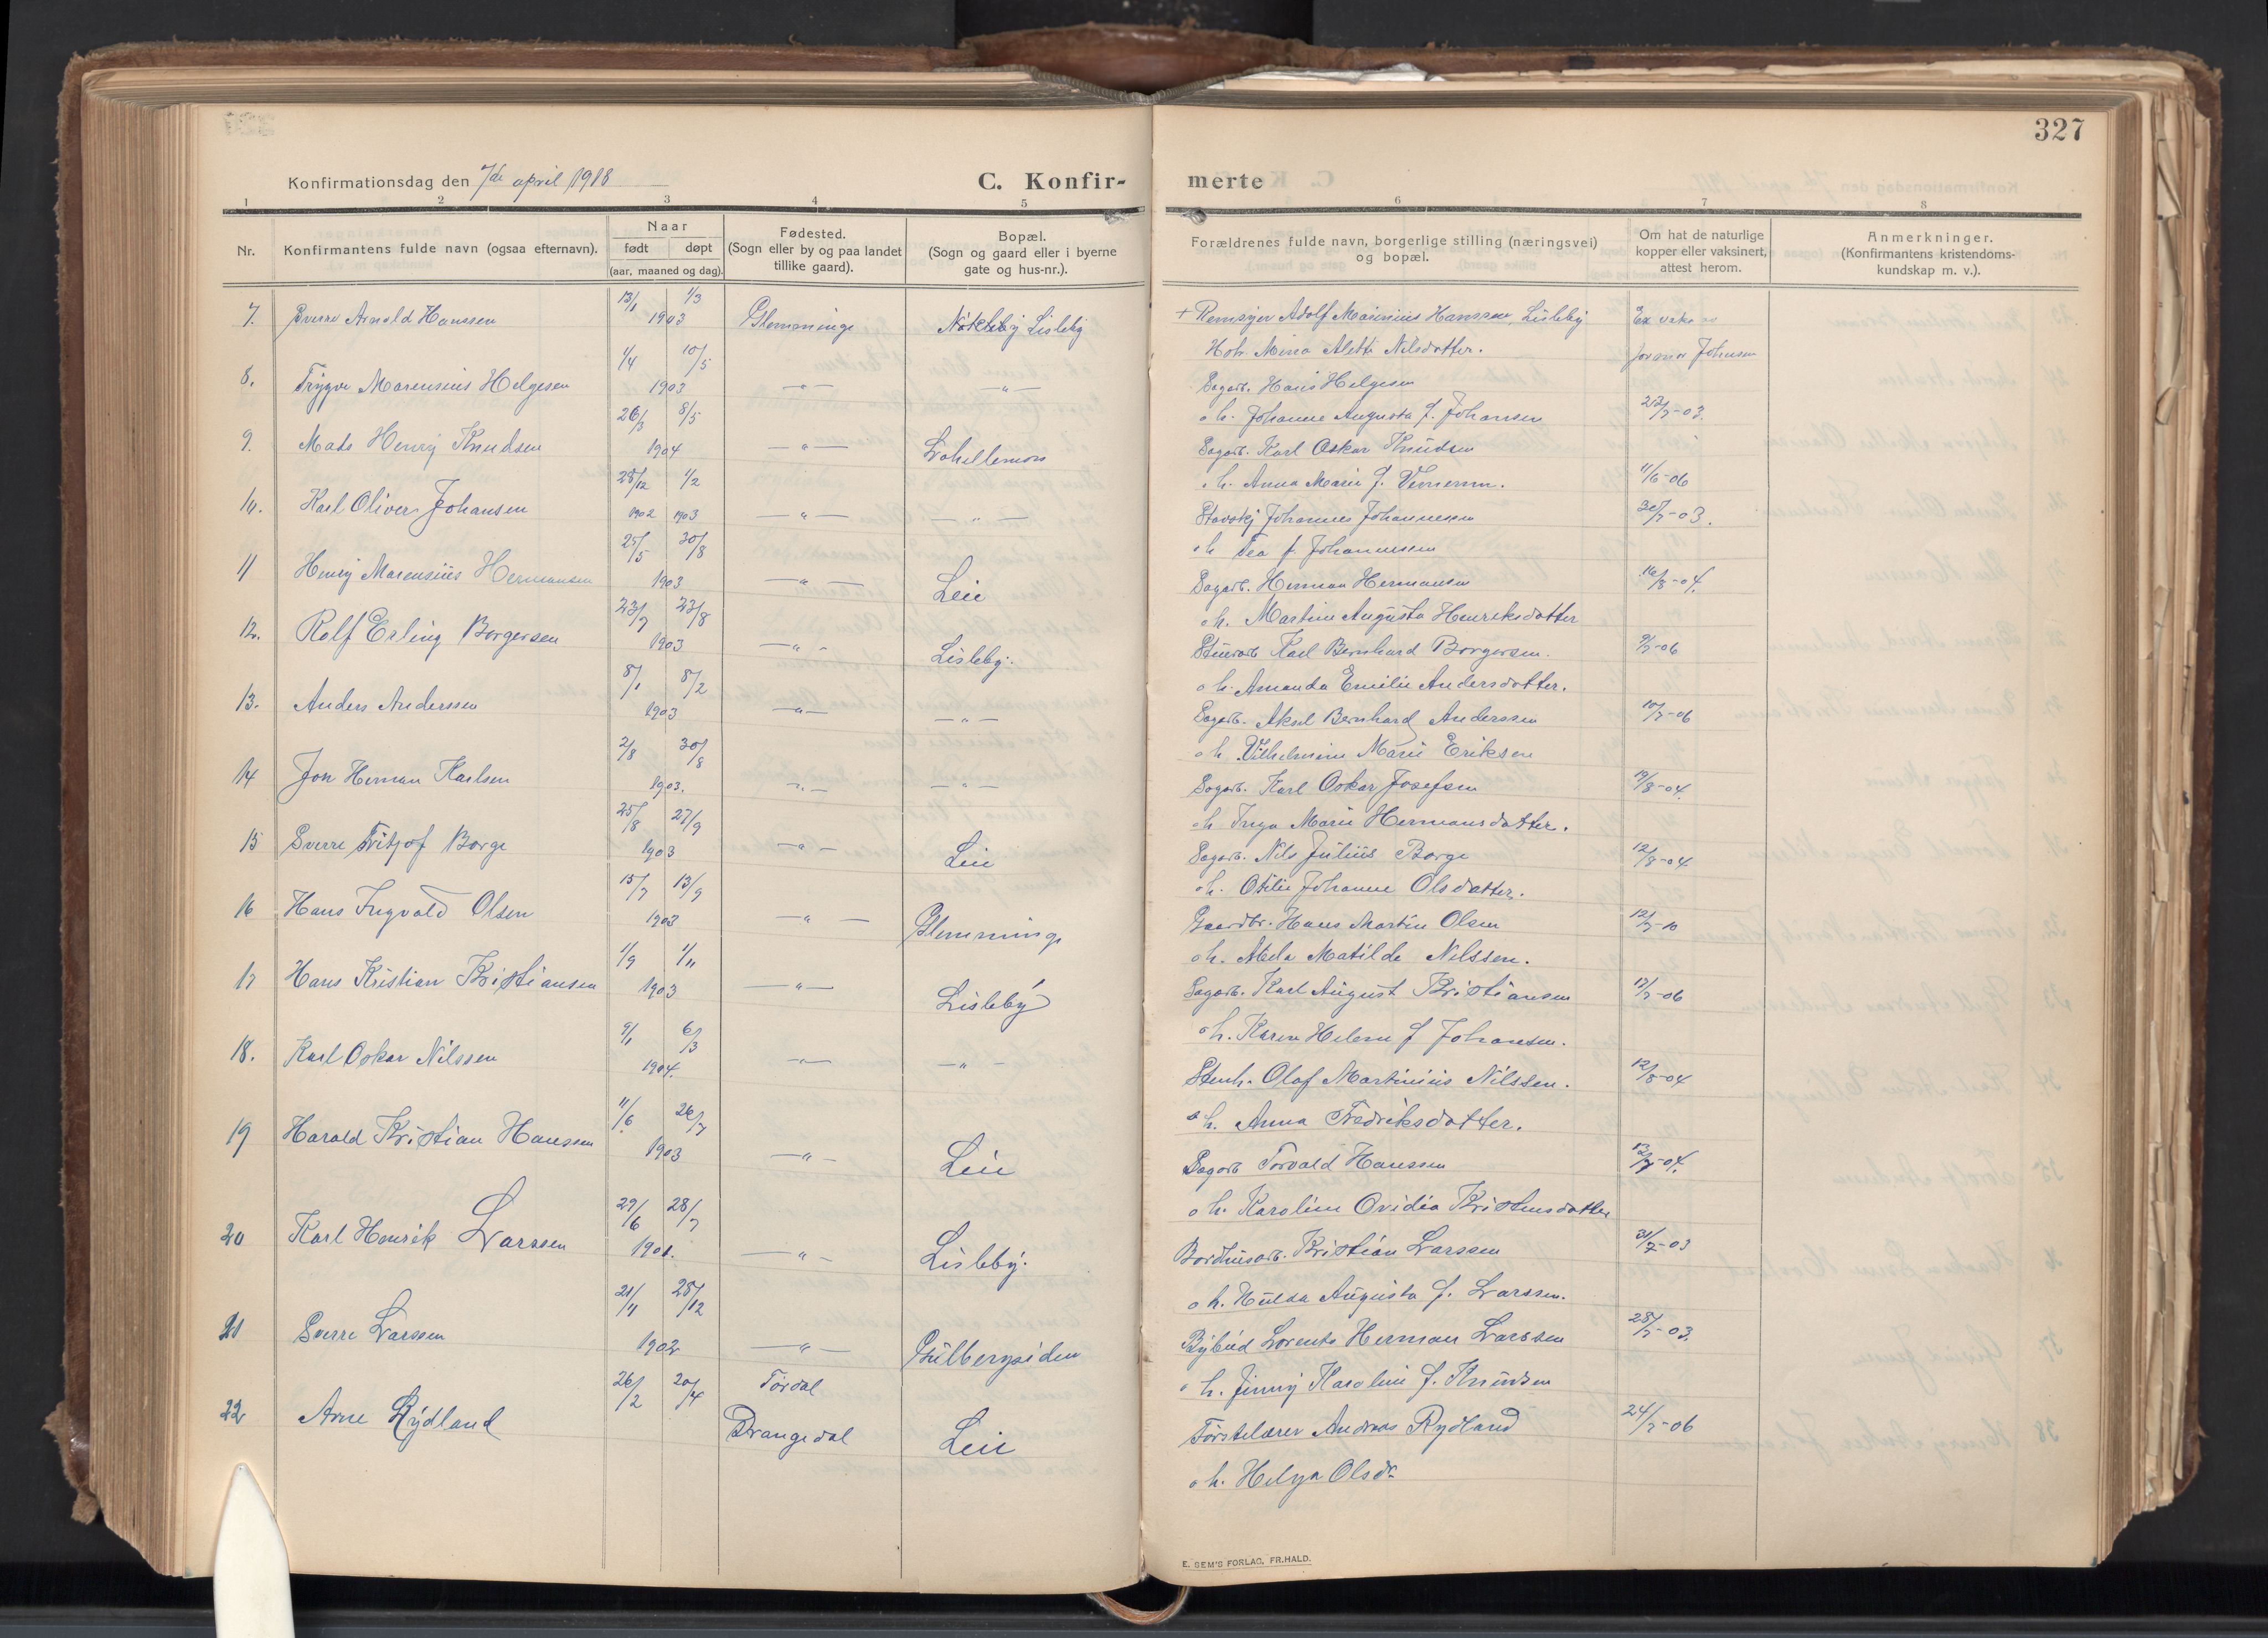 327
Konfirmationsdag den 7de april 1918
C. Konfir-
merte
1 2 3 4 5 6 7 8
Nr.
Konfirmantens fulde navn (ogsaa efternavn).
Naar
født døpt
(aar, maaned og dag).
Fødested.
(Sogn eller by og paa landet
tillike gaard).
Bopæl.
(Sogn og gaard eller i byerne
gate og hus-nr.).
Forældrenes fulde navn, borgerlige stilling (næringsvei)
og bopæl.
Om hat de naturlige
kopper eller vaksinert,
attest herom.
Anmerkninger.
(Konfirmantens kristendoms-
kundskap m. v.).
7. Sverre Arnold Hanssen 13/1 1/3 1903 Glemminge Nøkleby Lisleby
Adolf Marinius Hanssen, Lisleby
Mina Aletti Nilsdatter. Johnsen
8. Trygve Marensius Helgesen 1/4 10/5 1903 —"— —"—
Sagarb. Hans Helgesen
o h. Johanne Augusta f. Johansen 22/7-03.
9. Mats Henry Knudsen 26/3 8/5 1904 —"—
Sagarb. Karl Oskar Knudsen
o h. Anna Marie f. 11/6-06
10. Karl Oliver Johansen 28/12 1/2 1902 1903 —"— —"—
Johannes Johannessen 30/7-03.
o h Tea f. Johannessen
11 Henry Marensius Hermansen 25/5 30/8 1903 —"— Leie
Sagarb. Herman Hermansen 16/8-04.
o h. Martine Augusta Henriksdatter
12. Rolf Erling Borgersen 23/7 23/8 1903 —"— Lisleby.
Karl Bernhard Borgersen. 9/7-06
o h. Amanda Emilie Andersdatter.
13. Anders Anderssen 8/1 8/2 1903 —"— —"—
Sagarb. Aksel Bernhard Anderssen 10/7-06
o h Vilhelmine Marie Eriksen
14 Jon Herman Karlsen 2/8 30/8 1903. —"— —"—
Sagarb. Karl Oskar Josefsen 19/8-04.
o h Inga Marie Hermansdatter.
15 Sverre Fritjof Borge 25/8 27/9 1903 —"— Leie
Sagarb. Nils Julius Borge 12/8-04
o h. Otilie Johanne Olsdatter.
16 Hans Ingvald Olsen 15/7 13/9 1903 —"— Glemminge
Gaardbr. Hans Martin Olsen 12/7-10
o h. Matilde Nilssen.
17 Hans Kristian Kristiansen 1/9 1/11 1903 —"— Lisleby
Sagarb. Karl August Kristiansen 17/7-06
o h. Karen Helene f Johansen.
18. Karl Oskar Nilssen 9/1 6/3 1904. —"— —"—
Stenh. Olaf Martinius Nilssen. 12/8-04
o h. Anna Fredriksdatter.
19 Harald Kristian Hanssen 11/6 26/7 1903 —"— Leie
Sagarb Torvald Hanssen
o h. Karoline Ovidia Kristensdatter
20 Karl Henrik Larssen 29/6 28/7 1901. —"— Lisleby.
Kristian Larssen 31/7-03
o h. Hulda Augusta f. Larssen.
21 Sverre Larssen 21/11 28/12 1902 —"— Gulbergsiden
Bybud Lorents Herman Larssen 28/7-03.
o h. Jenny Karoline f. Knudsen
22 Arne Rydland 26/2 20/4 Tørdal
Drangedal Leie
Førstelærer Andreas Rydland 24/7-06
o h. Helga Olsdr.
E. SEM'S FORLAG, FR.HALD.